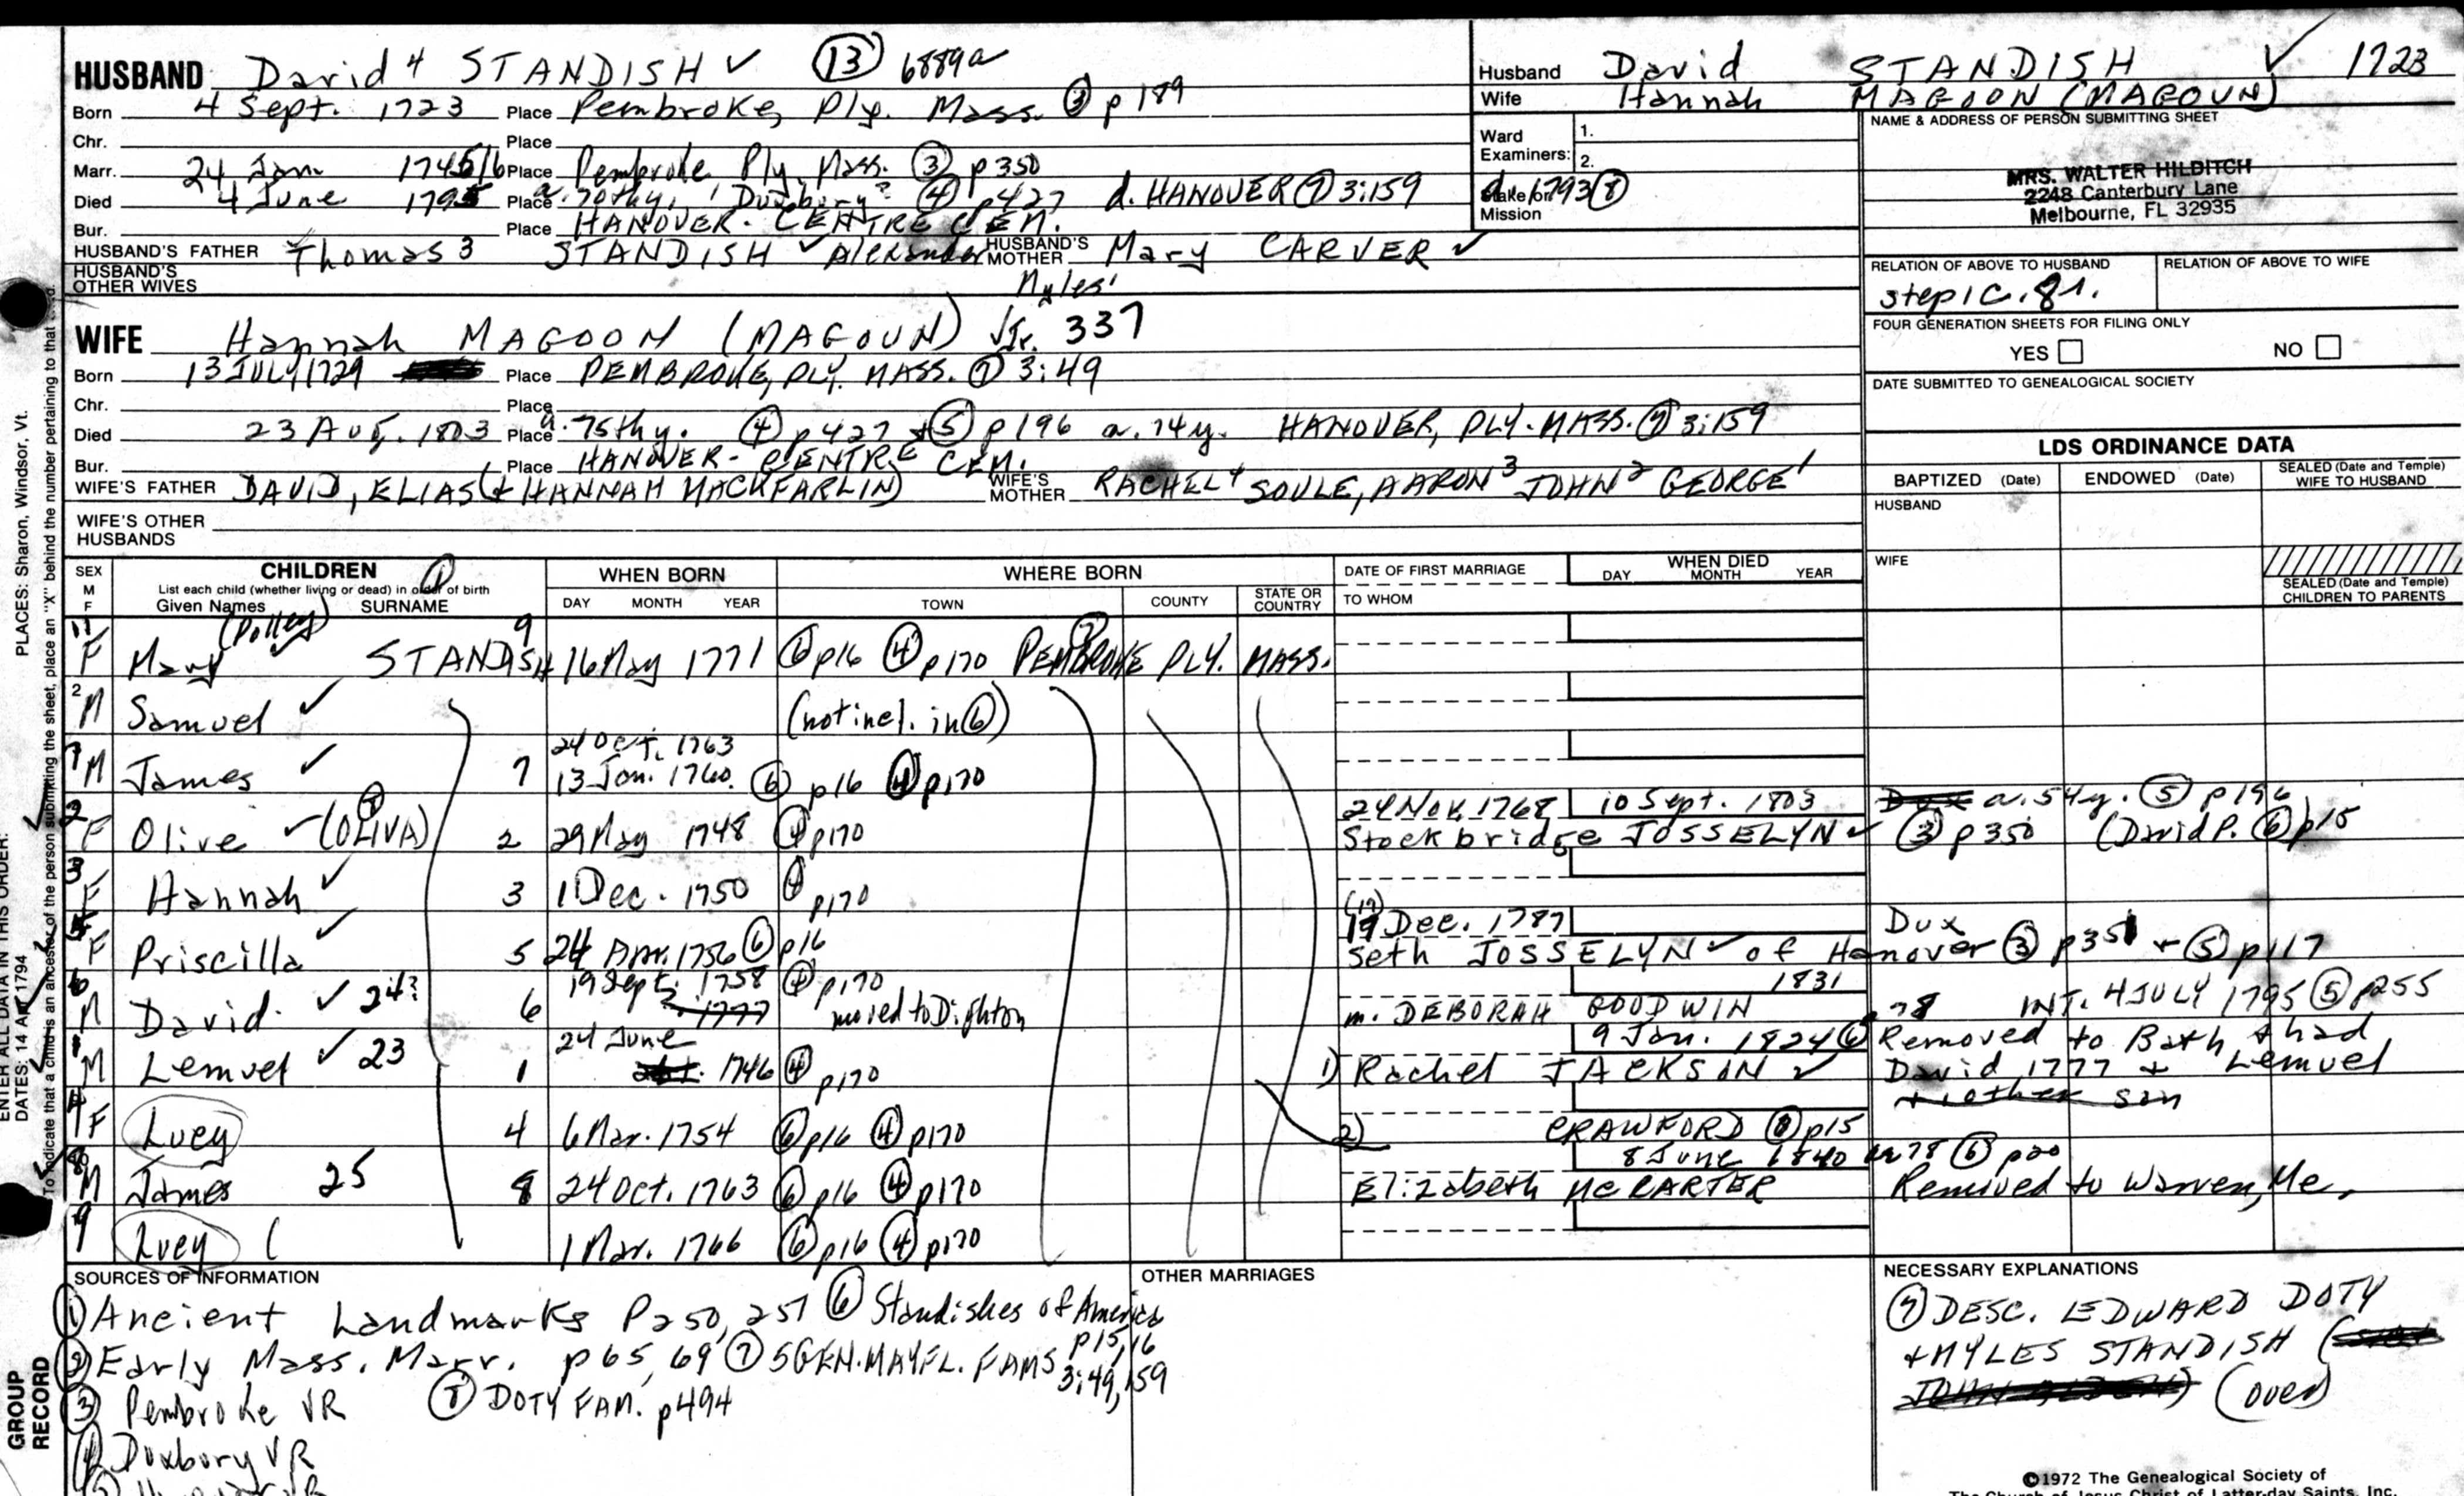 HUSBAND David 4 STANDISH ✓ (13) 6889a
Born 4 Sept. 1723 Place Pembroke, Ply. Mass. (3) p 189
Chr. Place
Marr. 24 Jan 1745/6 Place Pembroke Ply. Mass. (3) p 350
Died 4 June 179 Place a. 70thy, Duxbury? (4) p427 d. HANOVER (7) 3:159
Bur. Place HANOVER - CENTRE CEM.
HUSBAND'S FATHER Thomas 3 STANDISH ✓ Alexander HUSBAND'S MOTHER Mary CARVER ✓
HUSBAND'S OTHER WIVES Myles'
WIFE Hannah MAGOON (MAGOUN) Jr. 337
Born 13 JULY 1729 Place PEMBROKE, PLY. MASS. (7) 3:49
Chr. Place
Died 23 Aug. 1803 Place a. 75thy. (4) p427 + (5) p196 a. 74y. HANOVER, PLY. MASS. (7) 3:159
Bur. Place HANOVER - CENTRE CEM.
WIFE'S FATHER DAVID, ELIAS (+ HANNAH MACKFARLIN) WIFE'S MOTHER RACHEL 4 SOULE, AARON 3 JOHN 2 GEORGE 1
WIFE'S OTHER HUSBANDS
Husband David STANDISH ✓ 1723
Wife Hannah MAGOON (MAGOUN)
Ward Examiners: 1.
2.
Stake or Mission d. 1793 (8)
NAME & ADDRESS OF PERSON SUBMITTING SHEET
MRS. WALTER HILDITCH
2248 Canterbury Lane
Melbourne, FL 32935
RELATION OF ABOVE TO HUSBAND RELATION OF ABOVE TO WIFE
step 1C. 8r.
FOUR GENERATION SHEETS FOR FILING ONLY
YES NO
DATE SUBMITTED TO GENEALOGICAL SOCIETY
LDS ORDINANCE DATA
BAPTIZED (Date) ENDOWED (Date) SEALED (Date and Temple) WIFE TO HUSBAND
HUSBAND
WIFE
SEALED (Date and Temple) CHILDREN TO PARENTS
SEX M F CHILDREN (1) WHEN BORN WHERE BORN DATE OF FIRST MARRIAGE WHEN DIED
List each child (whether living or dead) in order of birth
Given Names SURNAME DAY MONTH YEAR TOWN COUNTY STATE OR COUNTRY TO WHOM DAY MONTH YEAR
F Mary (Polley) ✓ STANDISH 9 16 May 1771 (6) p16 (4) p170 PEMBROKE PLY. MASS.
2 M Samuel ✓ (not incl. in (6))
24 Oct. 1763
7 M James ✓ 7 13 Jan. 1760 (6) p16 (4) p170
24 Nov. 1768 10 Sept. 1803 a. 54y. (5) p196
2 F Olive ✓ (OLIVA) 2 29 May 1748 (4) p170 Stockbridge JOSSELYN ✓ (3) p350 (David P. (6) p15
3 F Hannah ✓ 3 1 Dec. 1750 (4) p170
19 Dec. 1787 Dux
5 F Priscilla ✓ 5 24 Apr. 1756 (6) p16 Seth JOSSELYN ✓ of Hanover (3) p351 + (5) p117
19 Sept. 1758 (4) p170 1831
6 M David ✓ 24? 6 1777 moved to Dighton m. DEBORAH GOODWIN 78 INT. 4 JULY 1795 (5) p255
24 June 9 Jan. 1824 (6) Removed to Bath & had
1 M Lemuel ✓ 23 1 1746 (4) p170 1) Rachel JACKSON ✓ David 1777 + Lemuel
+ nother son
4 F Lucy 4 6 Mar. 1754 (6) p16 (4) p170 2) CRAWFORD (8) p15
8 June 1840 ae 78 (6) p20
8 M James 25 8 24 Oct. 1763 (6) p16 (4) p170 Elizabeth McCARTER Removed to Warren, Me.
9 Lucy 1 Mar. 1766 (6) p16 (4) p170
SOURCES OF INFORMATION
(1) Ancient Landmarks P250, 251 (6) Standishes of America p15, 16
(2) Early Mass. Marr. p 65, 69 (7) 5 GEN. MAYFL. FAMS 3:49, 159
(3) Pembroke VR (8) DOTY FAM. p494
(4) Duxbury VR
OTHER MARRIAGES
NECESSARY EXPLANATIONS
(7) DESC. EDWARD DOTY
+ MYLES STANDISH
(over)
©1972 The Genealogical Society of
The Church of Jesus Christ of Latter-day Saints, Inc.
PLACES: Sharon, Windsor, Vt.
ENTER ALL DATA IN THIS ORDER:
DATES: 14 Apr 1794
To indicate that a child is an ancestor of the person submitting the sheet, place an "X" behind the number pertaining to that
GROUP RECORD